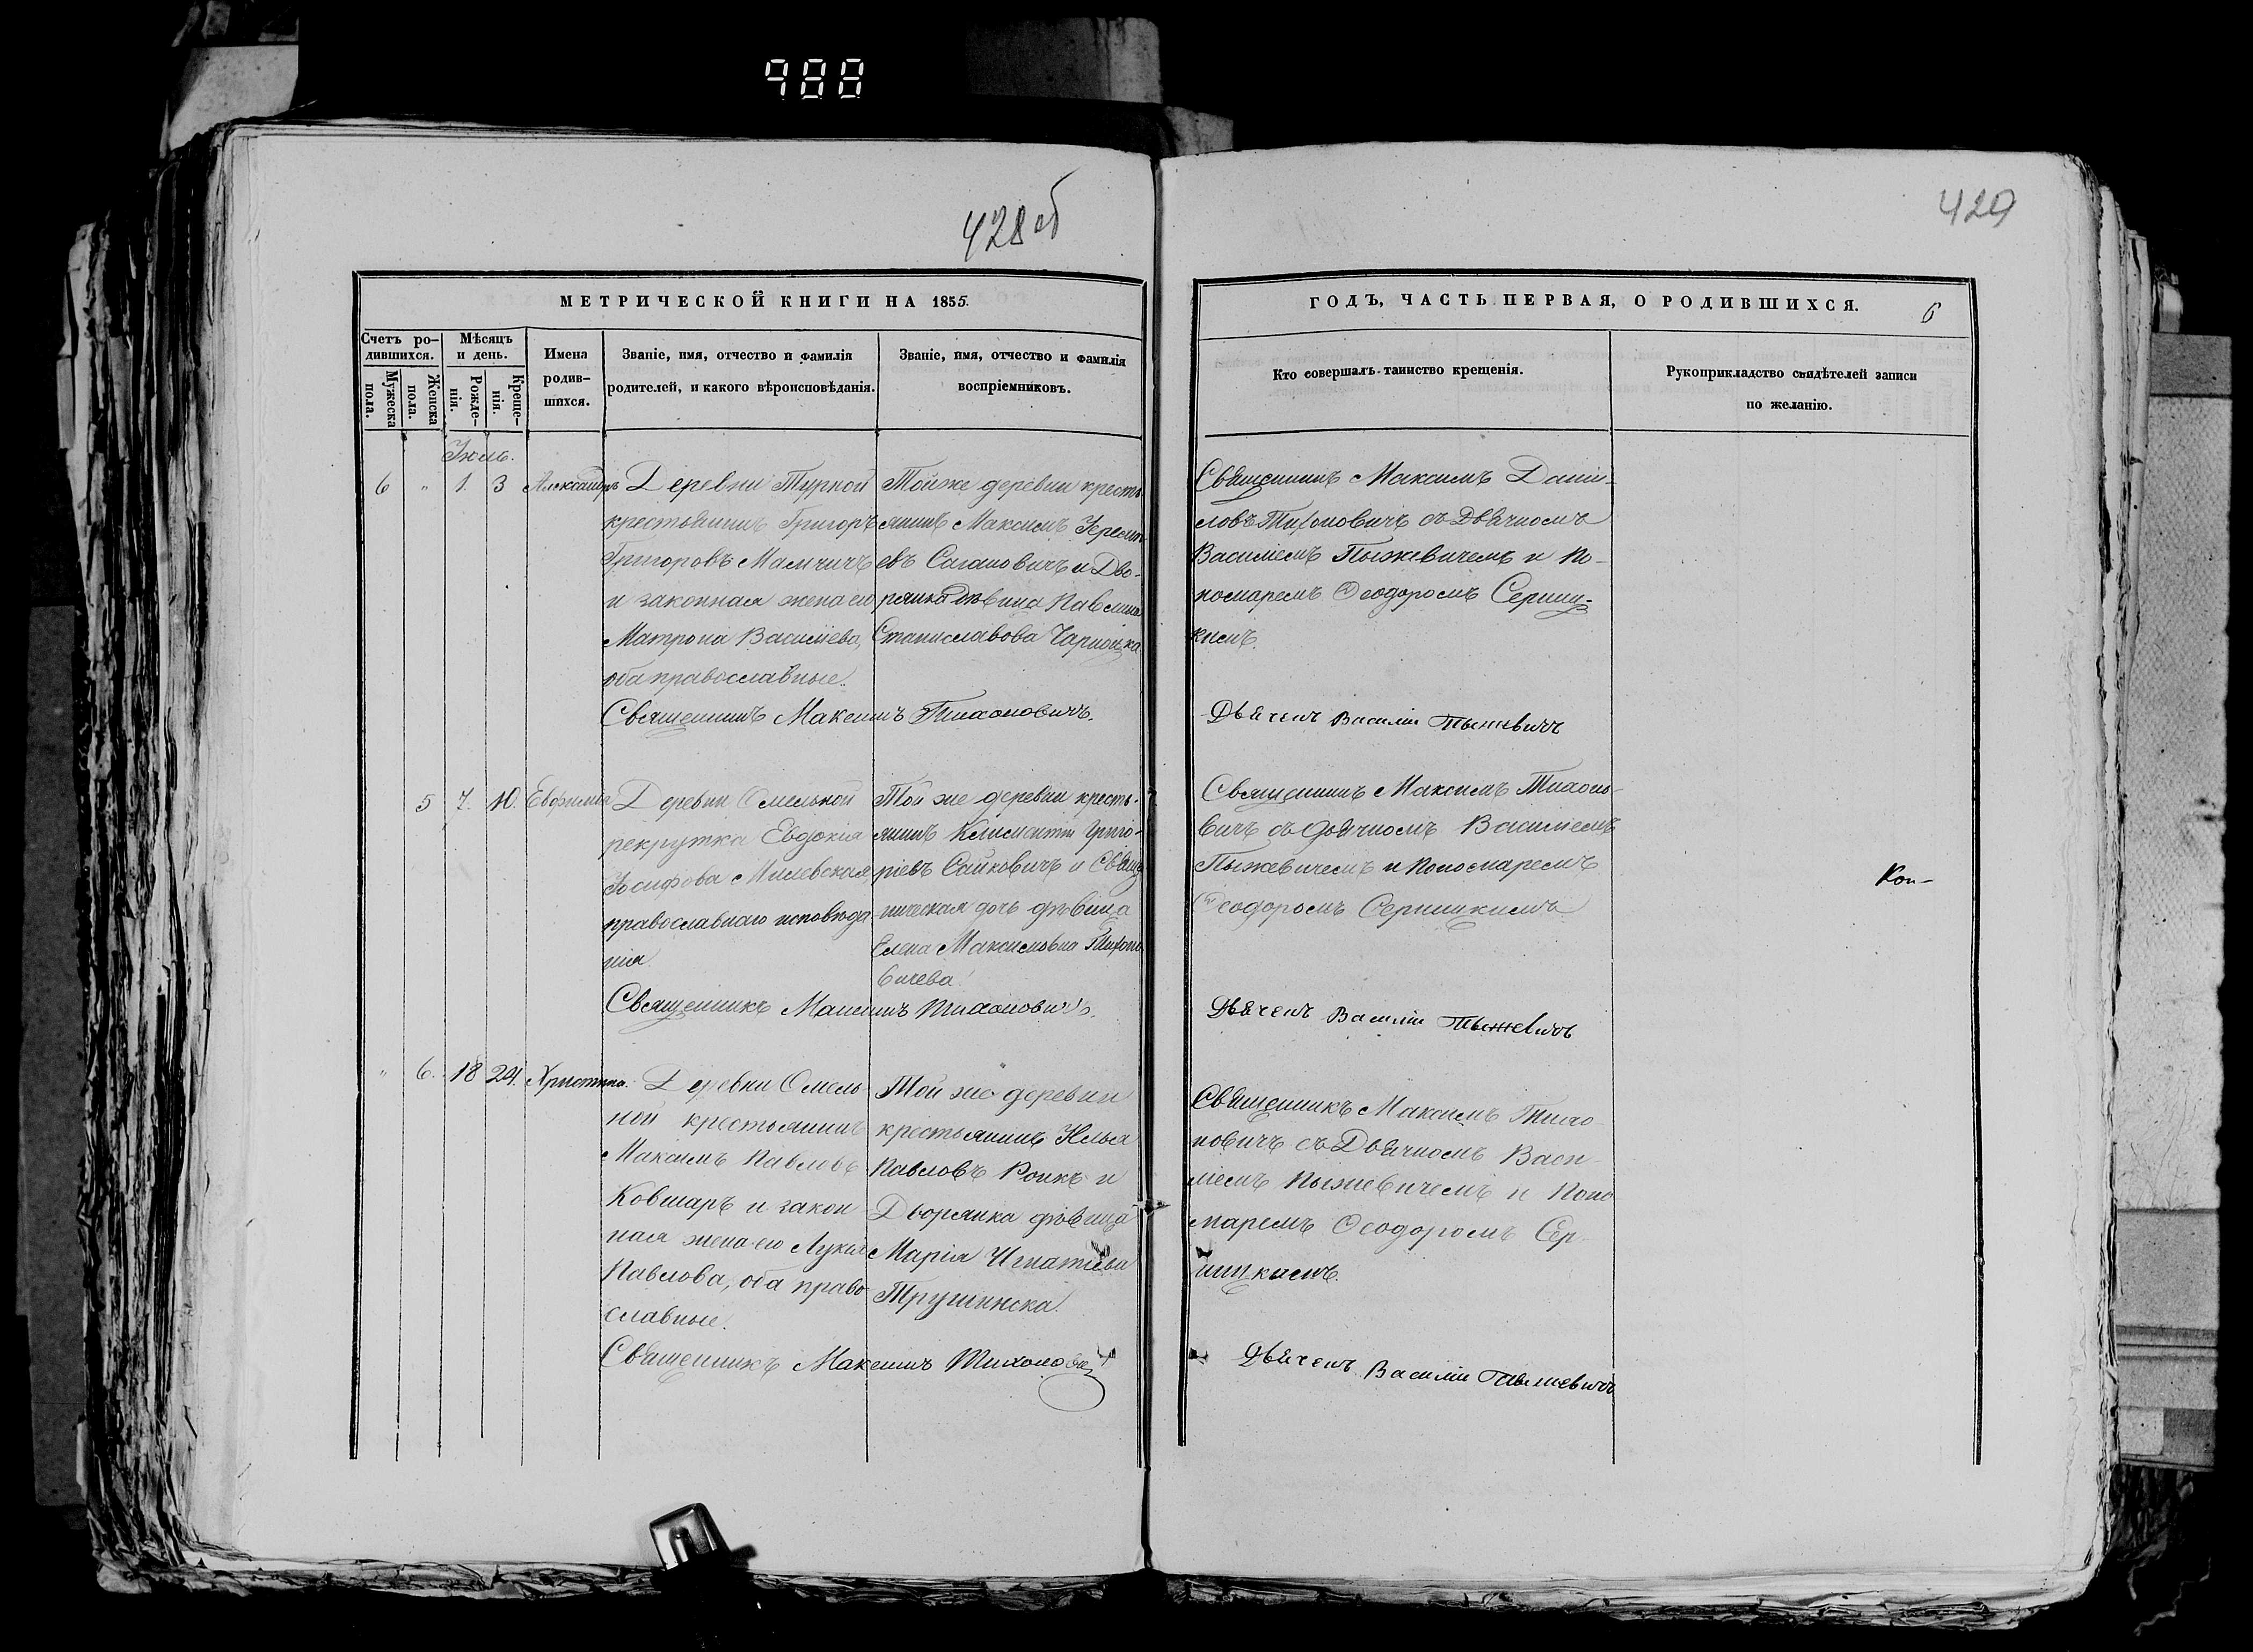 988
428об
429
МЕТРИЧЕСКОЙ КНИГИ НА 1855.
ГОДЪ, ЧАСТЬ ПЕРВАЯ, О РОДИВШИХСЯ.
6
Счетъ ро-
дившихся.
Мужеска
пола.
Женска
пола.
Мѣсяцъ
и день.
Рожде-
нія.
Креще-
нія.
Имена
родив-
шихся.
Званіе, имя, отчество и фамилія
родителей, и какого вѣроисповѣданія.
Званіе, имя, отчество и фамилія
воспріемниковъ.
Кто совершалъ таинство крещенія.
Рукоприкладство свидѣтелей записи
по желанію.
Іюль.
6 " 1. 3 Александръ
Деревни Турной
крестьянинъ Григоръ
Григоровъ Мамчичъ
и законная жена его
Матрона Василіева,
оба православные.
Тойже деревни кресть-
янинъ Максимъ
евъ Саганович и Дво-
рянка дѣвица Павлина
Станиславова
Священникъ Максимъ Тихоновичъ.
Священникъ Максимъ Даніи-
ловъ Тихоновичъ съ Дьячкомъ
Василіемъ Пыжевичемъ и По-
номаремъ Ѳеодоромъ Серниц-
кимъ.
Дьячекъ Василій Пыжевичъ
5 7. 10. Евфимія
Деревни Омельной
рекрутка Евдокія
Іосифова Милевская,
православнаго исповѣда
нія.
Той же деревни кресть-
янинъ Климентій Григо-
ріевъ Сайковичъ и Свящ
ническая дочь дѣвица
Елена Максимовна Тихоно
вичева
Священникъ Максимъ Тихоновичъ.
Священникъ Максимъ Тихоно-
вичъ съ Дьячкомъ Василіемъ
Пыжевичемъ и Пономаремъ
Ѳеодоромъ Серницкимъ
Кои-
Дьячекъ Василій Пыжевичъ
" 6. 18 24. Христина.
Деревни Омель-
ной крестьянинъ
Максимъ Павловъ
Ковшаръ и закон
ная жена его Лукія
Павлова, оба право
славные.
Той же деревни
крестьянинъ Илья
Павловъ Роикъ и
Дворянка дѣвица
Марія Игнатіева
Трушинска.
Священникъ Максимъ Тихонович
Священникъ Максимъ Тихо
новичъ съ Дьячкомъ Васи-
ліемъ Пыжевичемъ и Поно
маремъ Ѳеодоромъ Сер-
ницкимъ.
Дьячекъ Василій Пыжевичъ